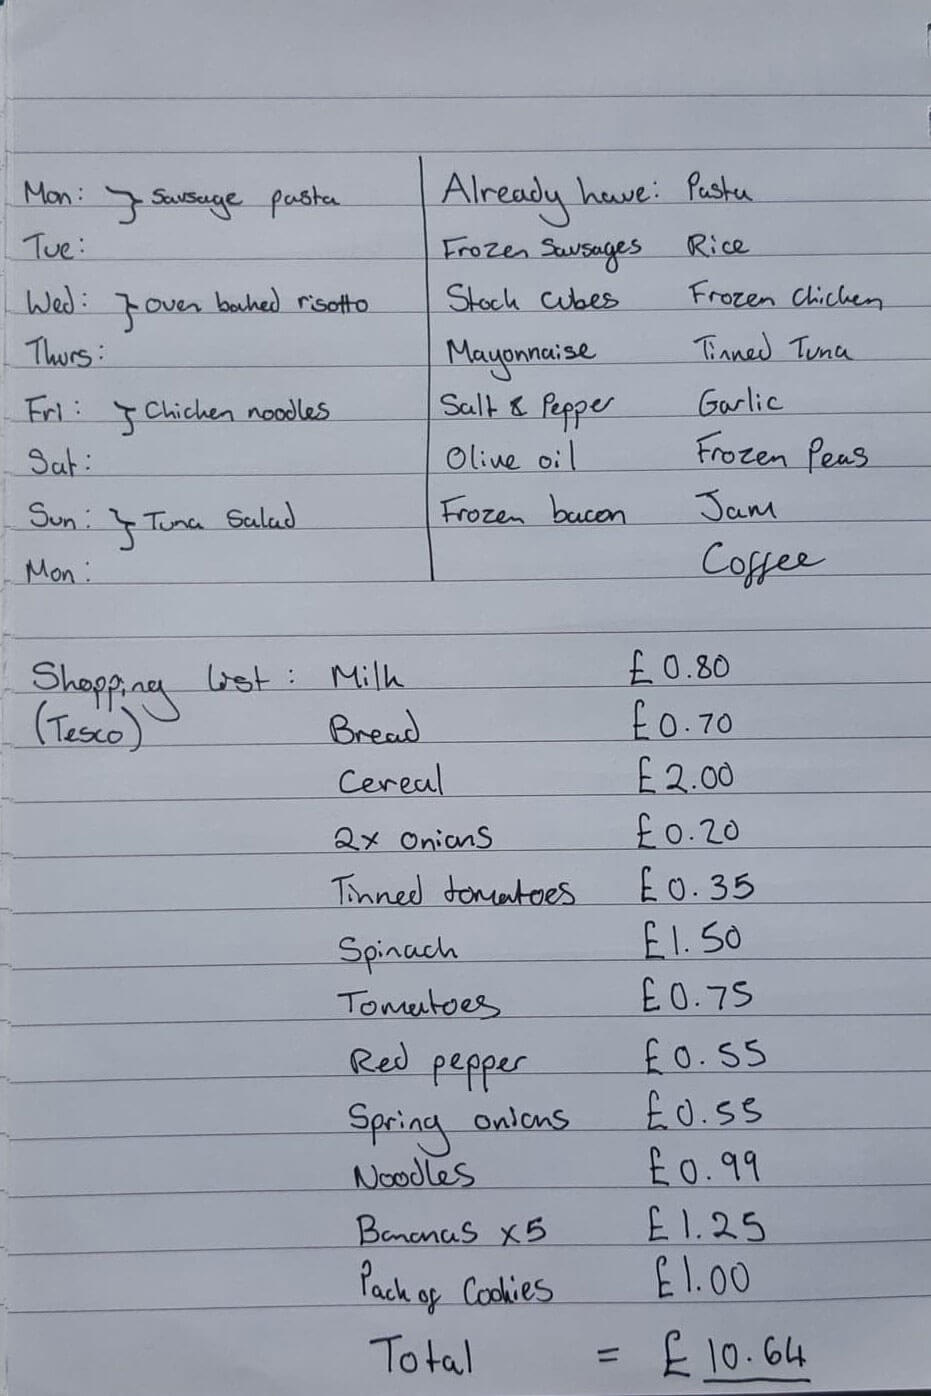 Mon: } Sausage pasta
Tue:
Wed: } Oven baked risotto
Thurs:
Fri: } Chicken noodles
Sat:
Sun: } Tuna Salad
Mon:
Already have: Pasta
Frozen Sausages Rice
Stock cubes Frozen Chicken
Mayonnaise Tinned Tuna
Salt & Pepper Garlic
Olive oil Frozen Peas
Frozen bacon Jam
Coffee
Shopping list: Milk £0.80
(Tesco) Bread £0.70
Cereal £2.00
2x onions £0.20
Tinned tomatoes £0.35
Spinach £1.50
Tomatoes £0.75
Red pepper £0.55
Spring onions £0.55
Noodles £0.99
Bananas x5 £1.25
Pack of Cookies £1.00
Total = £10.64